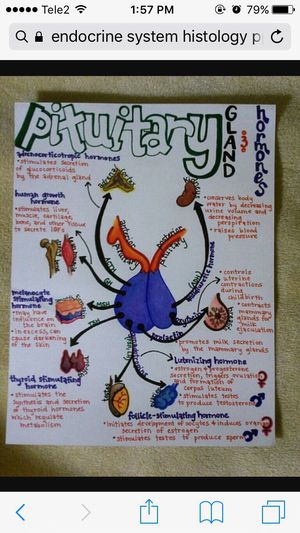 Tele2
1:57 PM
79%
endocrine system histology p
pituitary
GLAND
hormones
adrenocorticotropic hormones
• stimulates secretion
of glucocorticoids
by the adrenal gland
human growth
hormone
• stimulates liver,
muscle, cartilage,
bone, and other tissue
to secrete IGFs
melanocyte
stimulating
hormone
• may have
influence on
the brain
• in excess, can
cause darkening
of the skin
thyroid stimulating
hormone
• stimulates the
synthesis and secretion
of thyroid hormones
which regulate
metabolism
• conserves body
water by decreasing
urine volume and
decreasing
perspiration
• raises blood
pressure
antidiuretic hormone
• controls
uterine
contractions
during
child birth
• contracts
mammary
glands for
milk
ejaculation
anterior
pituitary
posterior
pituitary
MSH
prolactin
• promotes milk secretion
by the mammary glands
luteinizing hormone
• estrogen & progesterone
secretion, triggers ovulation
and formation of
corpus luteum
• stimulates testes
to produce testosterone
follicle-stimulating hormone
• initiates development of oocytes & induces ovarian
secretion of estrogen
• stimulates testes to produce sperm